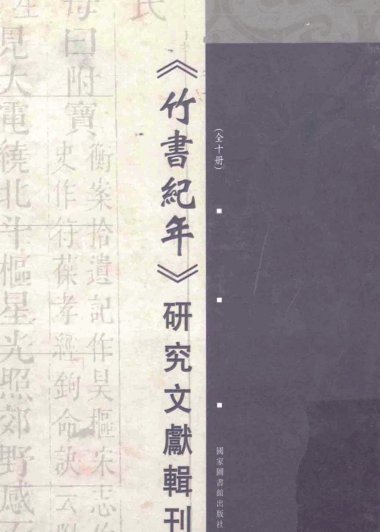 《竹書紀年》研究文獻輯刊
(全十册)
國家圖書館出版社
氏
母曰附寶
衡案拾遺記作昊樞宋志
史作行葆孝經鉤命訣云附
見大電繞北斗樞星光照郊野感